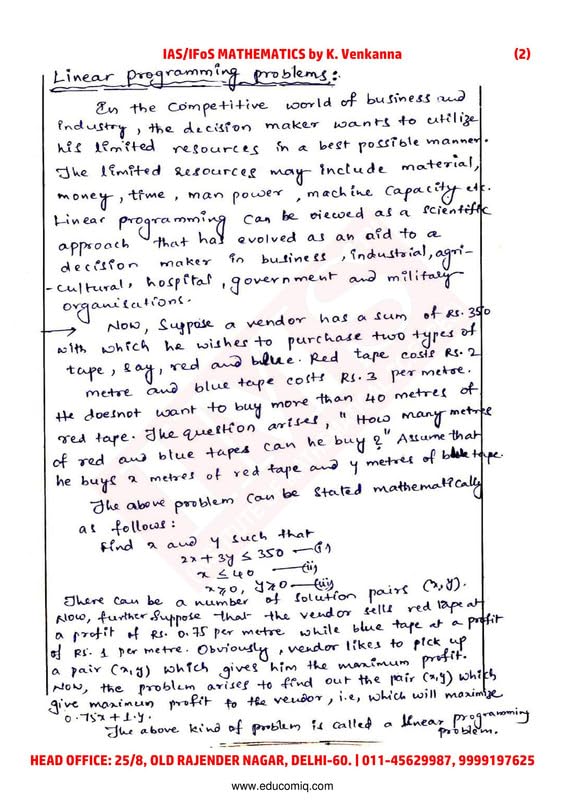 IAS/IFoS MATHEMATICS by K. Venkanna (2)
Linear programming problems:-
In the competitive world of business and
industry, the decision maker wants to utilize
his limited resources in a best possible manner.
The limited resources may include material,
money, time, man power, machine capacity etc.
Linear programming can be viewed as a scientific
approach that has evolved as an aid to a
decision maker in business, industrial, agri-
-cultural, hospital, government and military
organisations.
→ Now, Suppose a vendor has a sum of Rs. 350
with which he wishes to purchase two types of
tape, say, red and blue. Red tape costs Rs. 2
metre and blue tape costs Rs. 3 per metre.
He doesnot want to buy more than 40 metres of
red tape. The question arises, "How many metres
of red and blue tapes can he buy?" Assume that
he buys x metres of red tape and y metres of blue tape.
The above problem can be stated mathematically
as follows:
Find x and y such that
2x + 3y ≤ 350 —(i)
x ≤ 40 —(ii)
x≥0, y≥0 —(iii)
There can be a number of solution pairs (x,y).
Now, further suppose that the vendor sells red tape at
a profit of Rs. 0.75 per metre while blue tape at a profit
of Rs. 1 per metre. Obviously, vendor likes to pick up
a pair (x,y) which gives him the maximum profit.
Now, the problem arises to find out the pair (x,y) which
give maximum profit to the vendor, i.e, which will maximize
0.75x+1.y.
The above kind of problem is called a linear programming
problem.
HEAD OFFICE: 25/8, OLD RAJENDER NAGAR, DELHI-60. | 011-45629987, 9999197625
www.educomiq.com